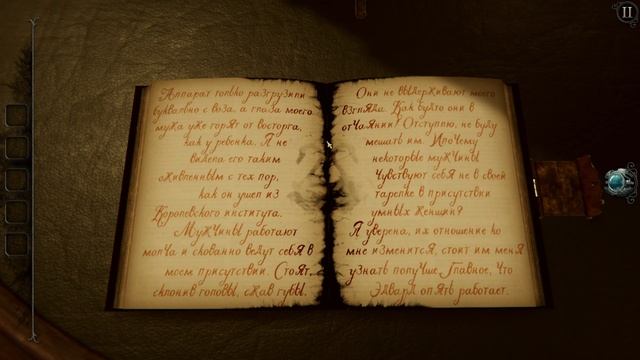 Аппарат только разгрузили
буквально с воза, а глаза моего
мужа уже горят от восторга,
как у ребенка. Я не
видела его таким
оживленным с тех пор,
как он ушел из
Королевского института.
Мужчины работают
молча и скованно ведут себя в
моем присутствии. Стоят,
склонив головы, сжав губы.
Они не выдерживают моего
взгляда. Как будто они в
отчаянии! Отступлю, не буду
мешать им. Почему
некоторые мужчины
чувствуют себя не в своей
тарелке в присутствии
умных женщин?
Я уверена, их отношение ко
мне изменится, стоит им меня
узнать получше. Главное, что
Эдвард опять работает.